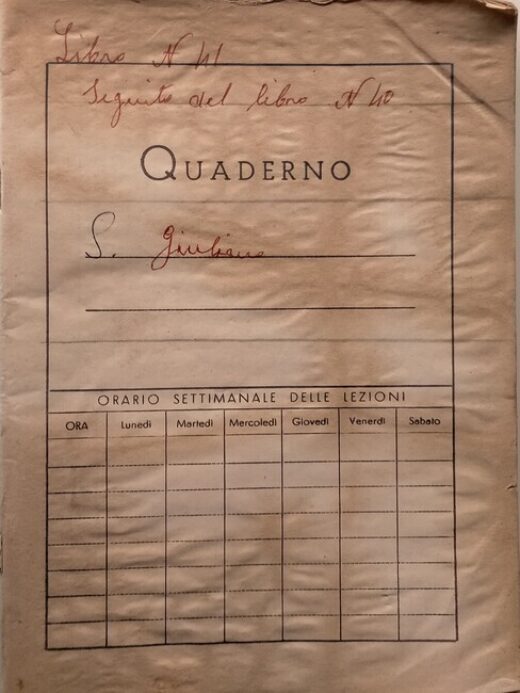 Libro N 41
Seguito del libro N 40
QUADERNO
S. Giuliano
ORARIO SETTIMANALE DELLE LEZIONI
ORA Lunedì Martedì Mercoledì Giovedì Venerdì Sabato